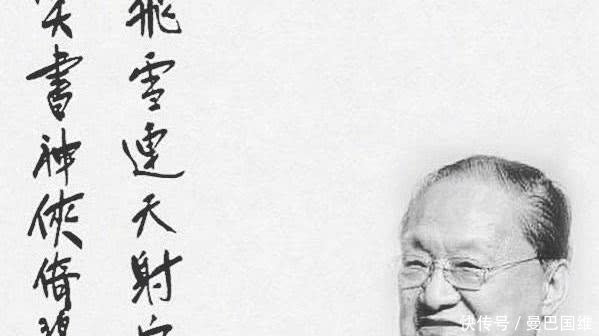 飛雪連天射
笑書神俠倚碧
快传号 / 曼巴国维